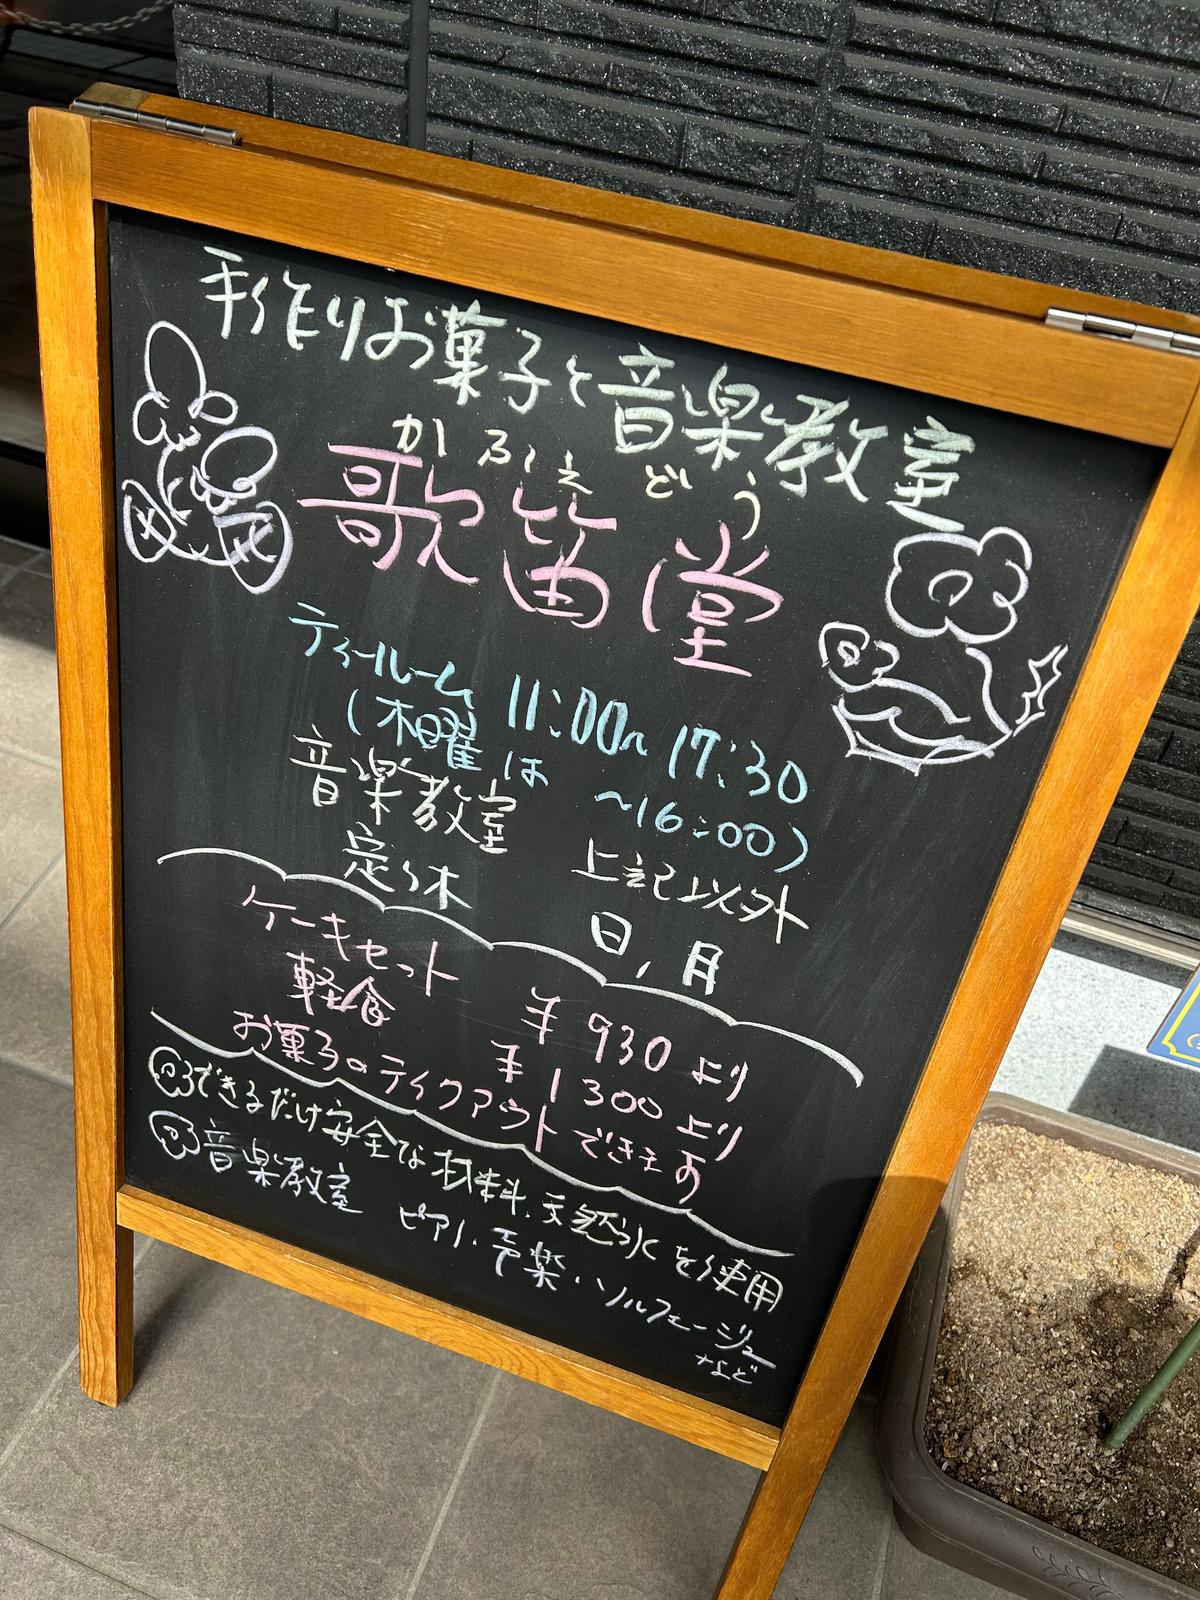 手作りお菓子と音楽教室
かふえどう
歌笛堂
ティールーム 11:00〜17:30
(木曜は 〜16:00)
音楽教室 上記以外
定休 日、月
ケーキセット ¥930より
軽食 ¥1300より
お菓子のテイクアウトできます
できるだけ安全な材料、天然氷を使用
音楽教室 ピアノ・声楽・ソルフェージュ
など